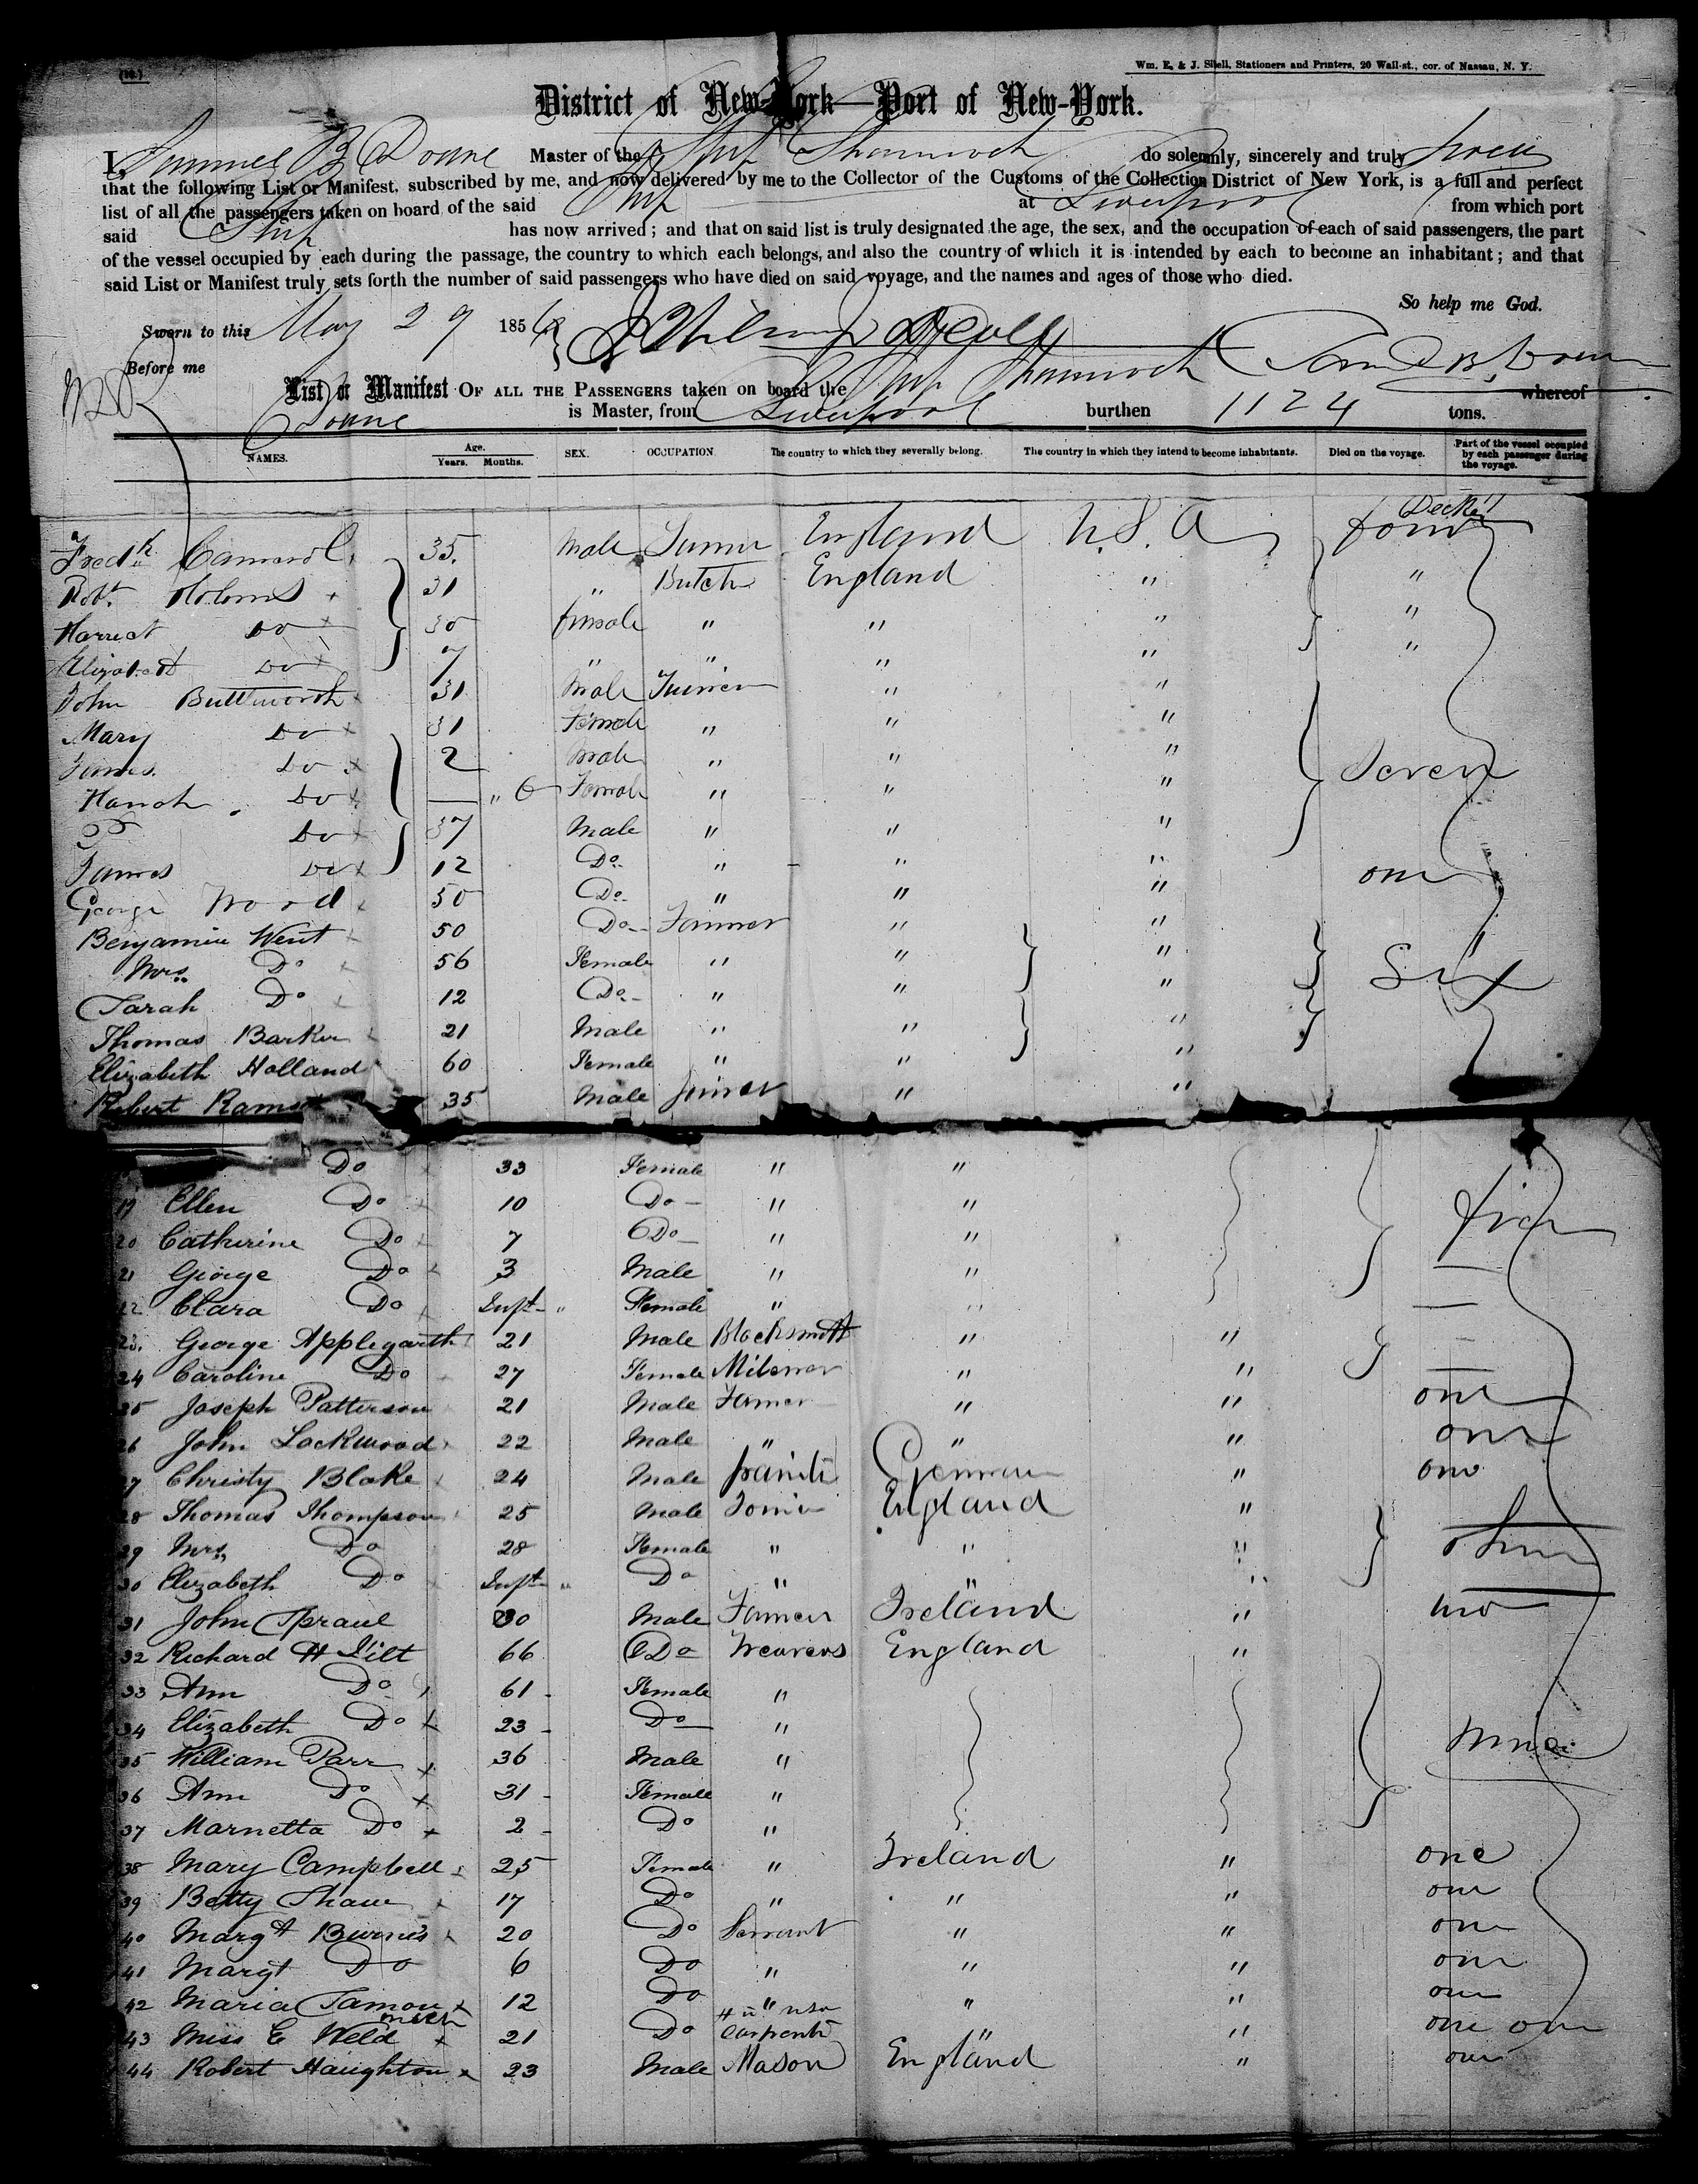 (10.)
Wm. E. & J. Sibell, Stationers and Printers, 20 Wall-st., cor. of Nassau, N. Y.
District of New-York—Port of New-York.
I, Samuel B Doane Master of the Ship Shamrock do solemnly, sincerely and truly Swear
that the following List or Manifest, subscribed by me, and now delivered by me to the Collector of the Customs of the Collection District of New York, is a full and perfect
list of all the passengers taken on board of the said Ship at Liverpool from which port
said Ship has now arrived; and that on said list is truly designated the age, the sex, and the occupation of each of said passengers, the part
of the vessel occupied by each during the passage, the country to which each belongs, and also the country of which it is intended by each to become an inhabitant; and that
said List or Manifest truly sets forth the number of said passengers who have died on said voyage, and the names and ages of those who died.
So help me God.
Sworn to this May 29 1856
Before me
List or Manifest OF ALL THE PASSENGERS taken on board the Ship Shamrock whereof
Doane is Master, from Liverpool burthen 1124 tons.
NAMES. Age. Years. Months. SEX. OCCUPATION. The country to which they severally belong. The country in which they intend to become inhabitants. Died on the voyage. Part of the vessel occupied by each passenger during the voyage.
Fredk 35. Male England U.S.A Deck
Robt. Holmes 31 " Butch England " "
Harriet Do 30 female " " " "
Elizabeth Do 7 " " " " "
John Butterworth 31 Male " "
Mary Do 31 Female " " "
James Do 2 Male " " "
Hanah Do — " 6 Female " " " Seven
Do 37 Male " " "
James Do 12 Do. " " "
George Wood 50 Do. " " " one
Benjamin Went 50 Do Farmer " "
Mrs. Do 56 Female " " "
Sarah Do 12 Do " " " Six
Thomas Barker 21 Male " " "
Elizabeth Holland 60 Female " " "
Robert 35 Male Joiner " "
Do 33 Female " "
19 Ellen Do 10 Do " "
20 Catherine Do 7 Do " "
21 George Do 3 Male " "
22 Clara Do Inft " Female " "
23. George Applegarth 21 Male Blacksmith " "
24 Caroline Do 27 Female " "
25 Joseph Patterson 21 Male Farmer " " one
26 John Lockwood 22 Male " " " one
27 Christy Blake 24 Male German " one
28 Thomas Thompson 25 Male England "
29 Mrs. Do 28 Female " " "
30 Elizabeth Do Inft " Do " " "
31 John Spraul 30 Male Farmer Ireland "
32 Richard H Tilt 66 Do Weavers England "
33 Ann Do 61 Female "
34 Elizabeth Do 23 Do "
35 William Parr 36 Male " Nine
36 Ann Do 31 Female "
37 Marnetta Do 2 Do "
38 Mary Campbell 25 Female " Ireland " one
39 Betty Shaw 17 Do " " " one
40 Margt Burnes 20 Do Servant " " one
41 Margt Do 6 Do " " " one
42 Maria 12 Do " " " one
43 Miss E Weld 21 Do Carpenter " " one one
44 Robert Haughton 23 Male Mason England " one